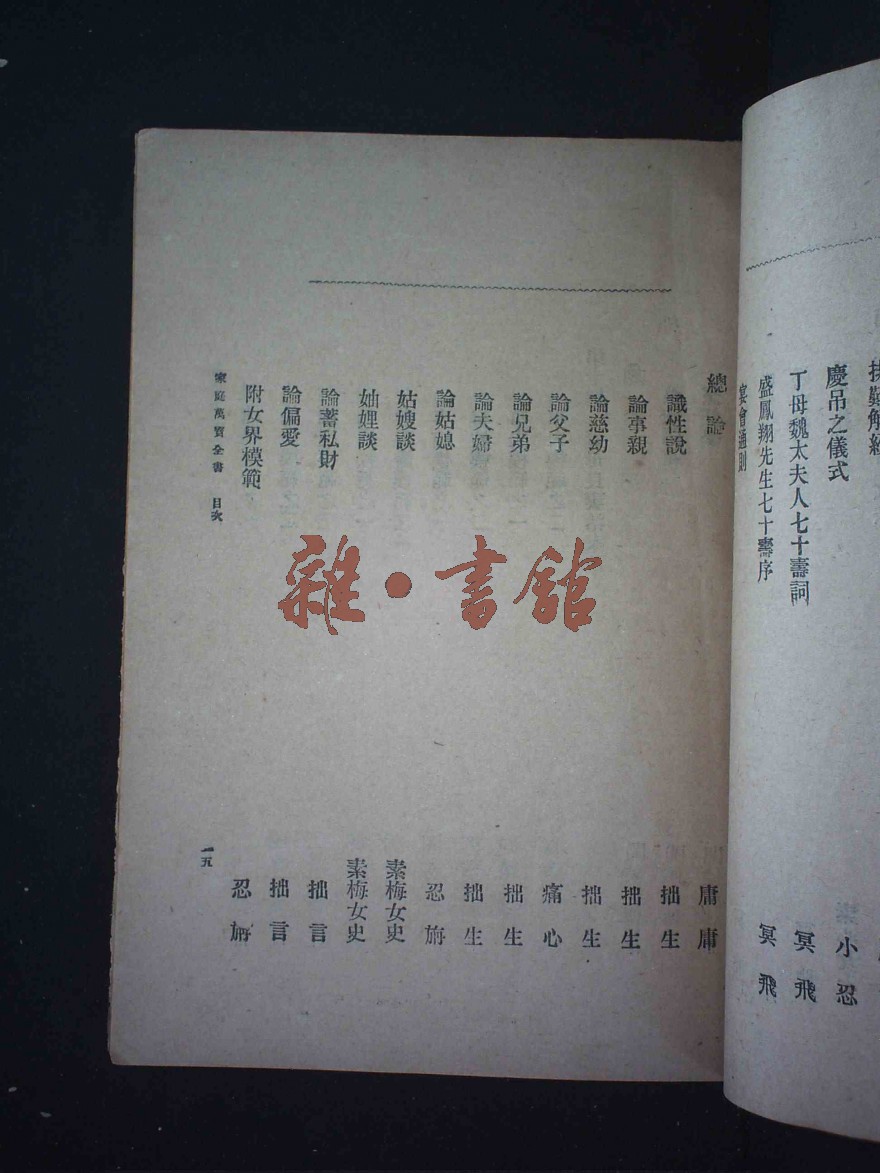 慶吊之儀式 小忍
丁母魏太夫人七十壽詞 冥飛
盛鳳翔先生七十壽序 冥飛
宴會通則
總論 庸庸
識性說 拙生
論事親 拙生
論慈幼 拙生
論父子 痛心
論兄弟 拙生
論夫婦 拙生
論姑媳 忍旃
姑嫂談 素梅女史
妯娌談 素梅女史
論蓄私財 拙言
論偏愛 拙言
附女界模範 忍旃
家庭萬寶全書 目次 一五
雜·書館